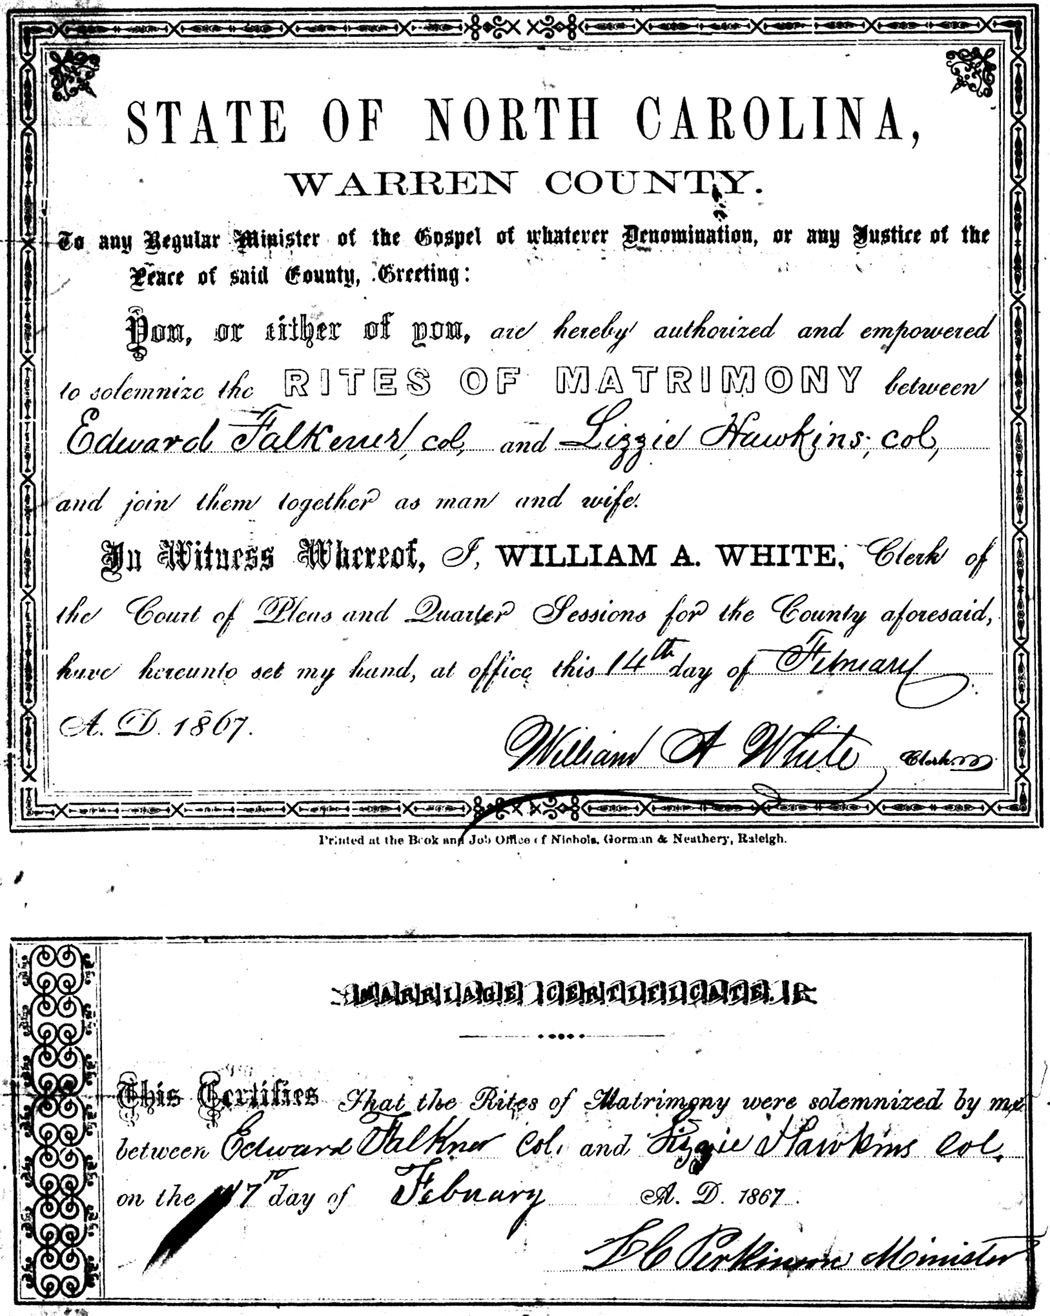 STATE OF NORTH CAROLINA,
WARREN COUNTY.
To any Regular Minister of the Gospel of whatever Denomination, or any Justice of the
Peace of said County, Greeting:
You, or either of you, are hereby authorized and empowered
to solemnize the RITES OF MATRIMONY between
Edward Falkener, col, and Lizzie Hawkins, col,
and join them together as man and wife.
In Witness Whereof, I, WILLIAM A. WHITE, Clerk of
the Court of Pleas and Quarter Sessions for the County aforesaid,
have hereunto set my hand, at office this 14th day of February
A. D. 1867.
William A White Clerk
Printed at the Book and Job Office of Nichols, Gorman & Neathery, Raleigh.
MARRIAGE CERTIFICATE.
This Certifies That the Rites of Matrimony were solemnized by me
between Edward Falkner Col, and Lizzie Hawkins Col,
on the 17 day of Febuary A. D. 1867.
L C Perkinson Minister